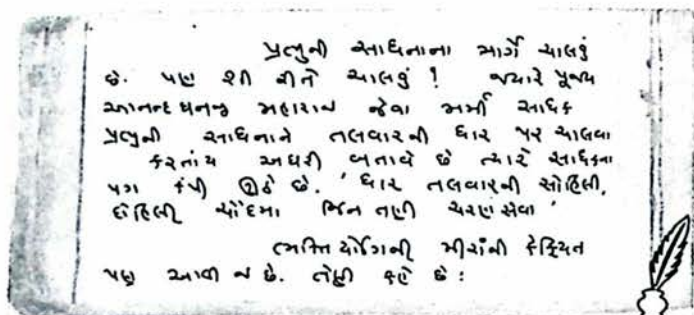 પ્રભુની સાધનાના માર્ગે ચાલવું
છે. પણ શી રીતે ચાલવું ! જ્યારે પૂજ્ય
આનન્દઘનજી મહારાજ જેવા મર્મી સાધક
પ્રભુની સાધનાને તલવારની ધાર પર ચાલવા
કરતાંય અઘરી બતાવે છે ત્યારે સાધકના
પગ કંપી ઊઠે છે. ' ધાર તલવારની સોહિલી,
દોહિલી ચૌદમા જિન તણી ચરણ સેવા '
ભક્તિયોગિની મીરાંની કેફિયત
પણ આવી જ છે. તેણી કહે છે :